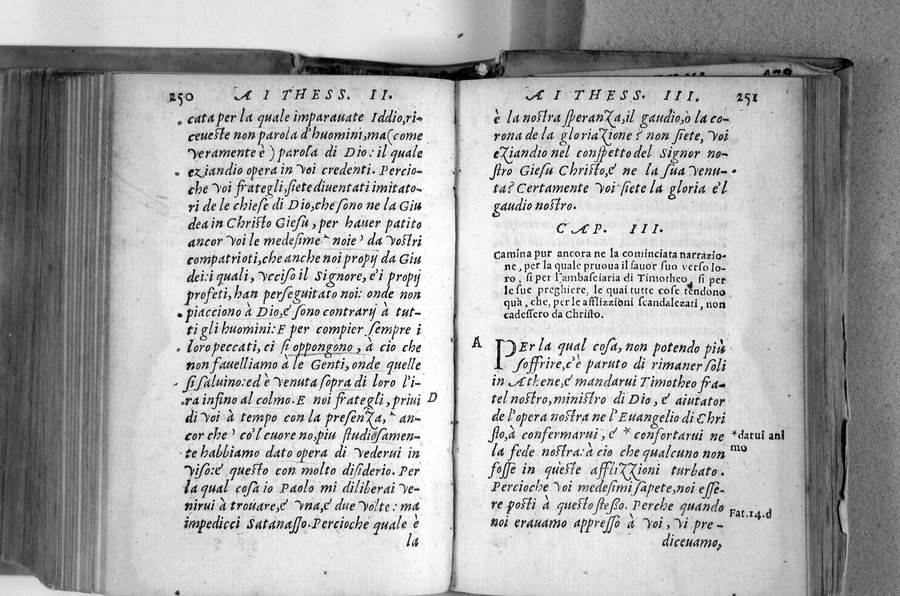 250 A I THESS. II.
cata per la quale imparauate Iddio, ri-
ceueste non parola d'huomini, ma (come
veramente è) parola di Dio: il quale
eziandio opera in voi credenti. Percio-
che voi frategli, siete diuentati imitato-
ri de le chiese di Dio, che sono ne la Giu
dea in Christo Giesu, per hauer patito
ancor voi le medesime ˋ noie ˊ da vostri
compatrioti, che anche noi propij da Giu
dei: i quali, vcciso il Signore, e'i propij
profeti, han perseguitato noi: onde non
piacciono à Dio, é sono contrarij à tut-
ti gli huomini: E per compier sempre i
loro peccati, ci si oppongono, à cio che
non fauelliamo à le Genti, onde quelle
si saluino: ed è venuta sopra di loro l'i-
ra infino al colmo. E noi frategli, priui
D
di voi à tempo con la presenza, ˋ an-
cor che ˊ co'l cuore no, piu studiosamen-
te habbiamo dato opera di vederui in
viso: é questo con molto disiderio. Per
la qual cosa io Paolo mi diliberai ve-
nirui à trouare, é vna, é due volte: ma
impedicci Satanasso. Percioche quale è
la
A I THESS. III. 251
è la nostra speranza, il gaudio, ò la co-
rona de la gloriazione? non siete, voi
eziandio nel conspetto del Signor no-
stro Giesu Christo, é ne la sua venu-
ta? Certamente voi siete la gloria e'l
gaudio nostro.
CAP. III.
Camina pur ancora ne la cominciata narrazio-
ne, per la quale pruoua il fauor suo verso lo-
ro, si per l'ambasciaria di Timotheo, si per
le sue preghiere, le quai tutte cose tendono
quà, che, per le afflizzioni scandalezati, non
cadessero da Christo.
A
PEr la qual cosa, non potendo più
soffrire, c'è paruto di rimaner soli
in Athene, é mandarui Timotheo fra-
tel nostro, ministro di Dio, é aiutator
de l'opera nostra ne l'Euangelio di Chri
sto, à confermarui, é * confortarui ne
*datui ani
mo
la fede nostra: à cio che qualcuno non
fosse in queste afflizzioni turbato.
Percioche voi medesimi sapete, noi esse-
re posti à questo stesso. Perche quando
Fat. 14. d
noi erauamo appresso à voi, vi pre-
diceuamo,